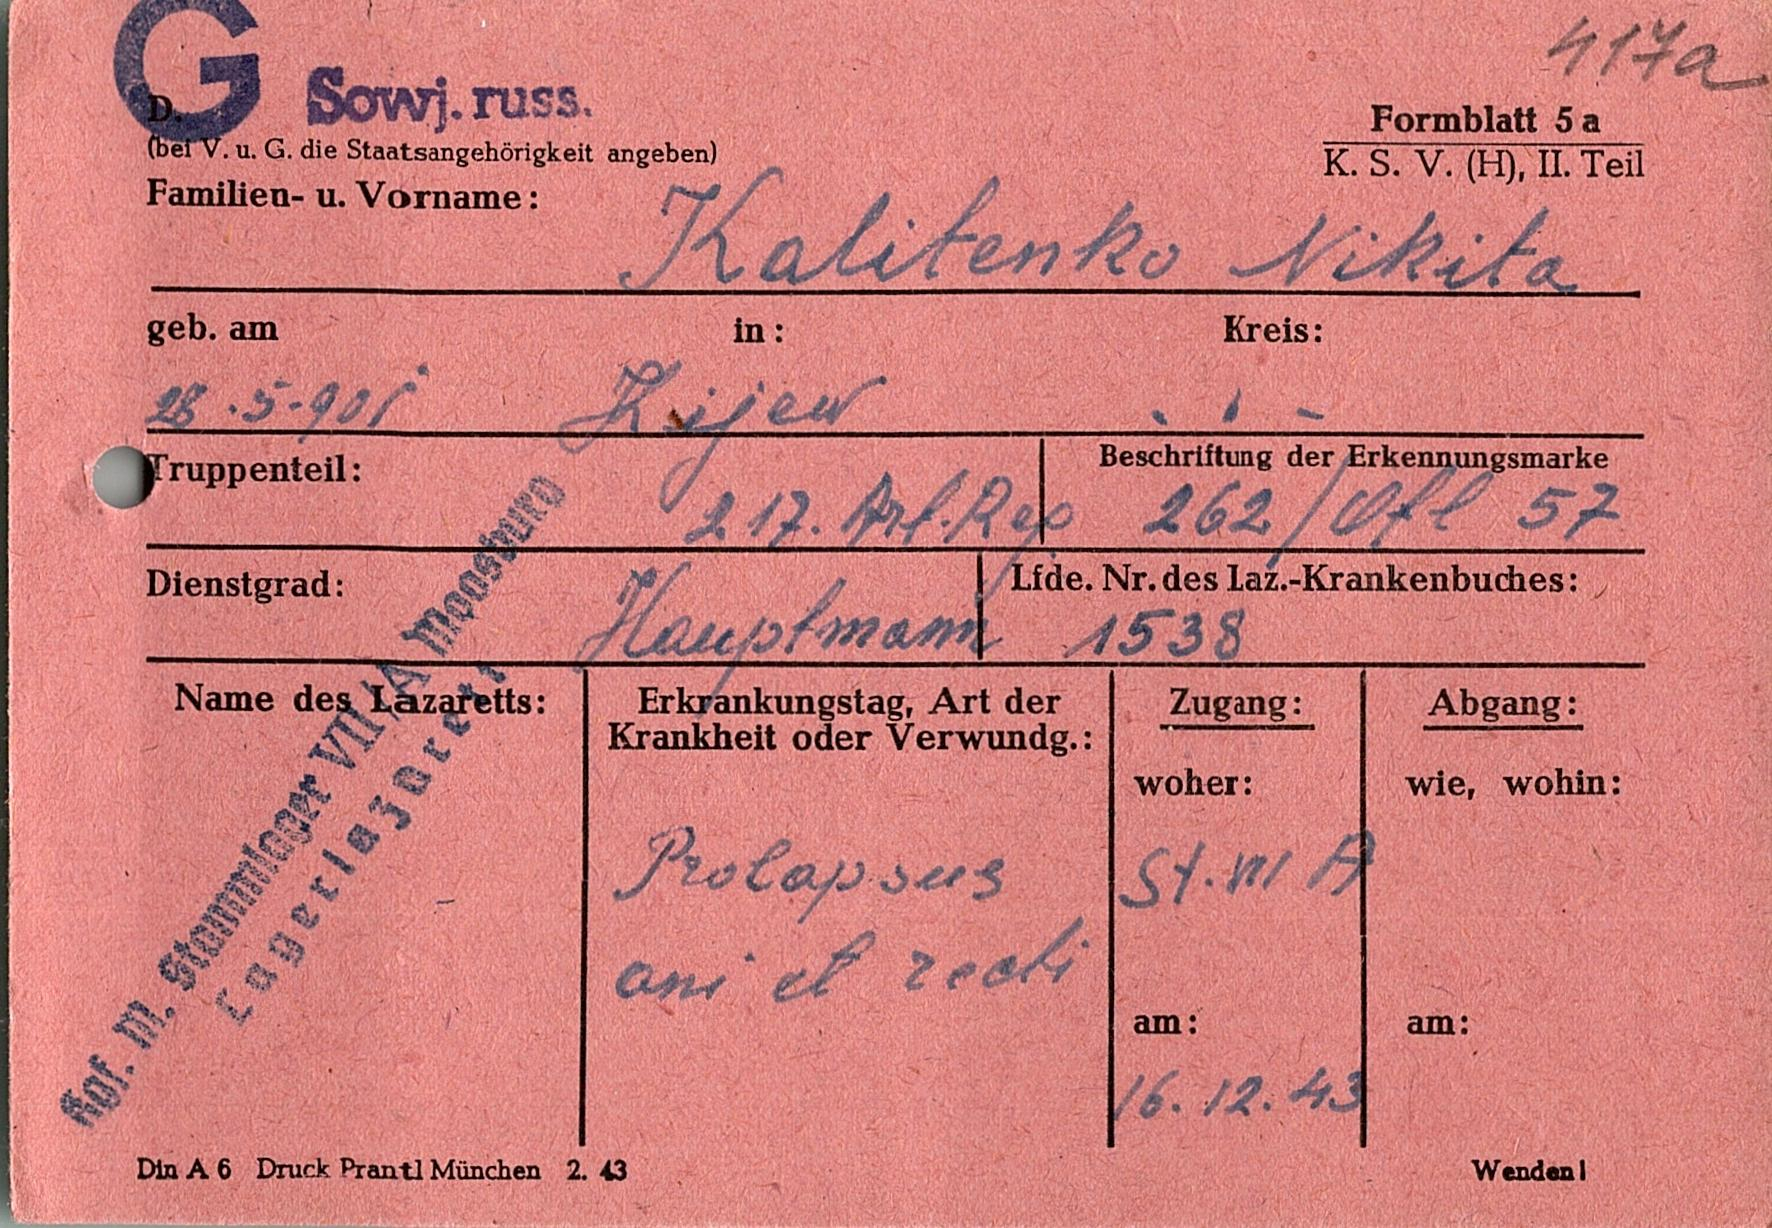 417a
G Sowj. russ.
D.
Formblatt 5 a
(bei V. u. G. die Staatsangehörigkeit angeben)
K. S. V. (H), II. Teil
Familien- u. Vorname:
Kalitenko Nikita
geb. am in: Kreis:
28.5.901 Kijew . ' -
Truppenteil: Beschriftung der Erkennungsmarke
217. Art. Reg 262/Ofl 57
Dienstgrad: Lfde. Nr. des Laz.-Krankenbuches:
Hauptmann 1538
Name des Lazaretts: Erkrankungstag, Art der Zugang: Abgang:
Krankheit oder Verwundg.:
woher: wie, wohin:
Kgf. M. Stammlager VII/A Moosburg
Lagerlazarett
Prolapsus St. VII A
ani et recti
am: am:
16. 12. 43
Din A 6 Druck Prantl München 2. 43 Wenden!